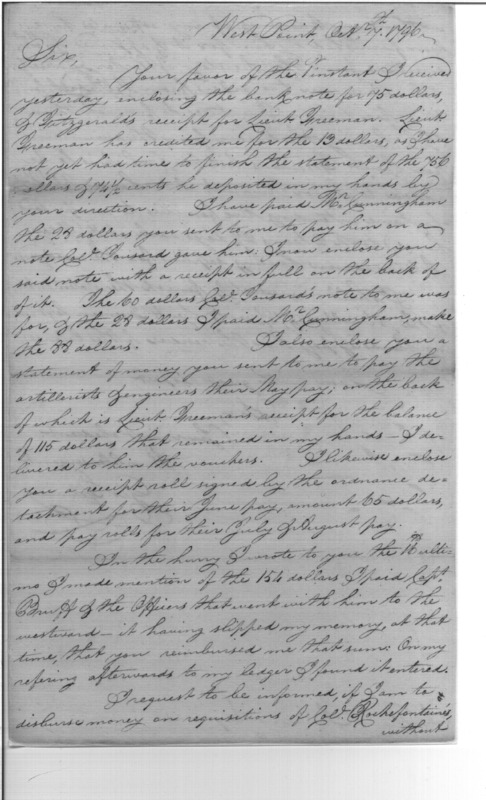 West Point, Octr. 7th 1796.
Sir,
Your favor of the 1 instant I received
yesterday, enclosing the bank note for 75 dollars,
& Fitzgerald's receipt for Lieut Freeman. Lieut
Freeman has credited me for the 13 dollars, as I have
not yet had time to finish the statement of the 86
ollars & 74½ cents he deposited in my hands by
your direction. I have paid Mr. Cunningham
the 28 dollars you sent to me to pay him on a
note Colo. Tousard gave him; I now enclose you
said note with a receipt in full on the back of
of it. The 60 dollars Colo. Tousard's note to me was
for, & the 28 dollars I paid Mr. Cunningham, make
the 88 dollars. I also enclose you a
statement of money you sent to me to pay the
artillerists & engineers their May pay; on the back
of which is Lieut Freeman's receipt for the balance
of 115 dollars that remained in my hands — I de-
livered to him the vouchers. I likewise enclose
you a receipt roll signed by the ordnance de-
tachment for their June pay, amount 65 dollars,
and pay rolls for their July & August pay.
In the hurry I wrote to you the ulti-
mo I made mention of the 154 dollars I paid Capt.
Bruff & the Officers that went with him to the
westward — it having slipped my memory, at that
time, that you reimbursed me that sum: On my
refering afterwards to my ledger I found it entered.
I request to be informed, if I am to
disburse money on requisitions of Colo. Rochefontaine's,
without